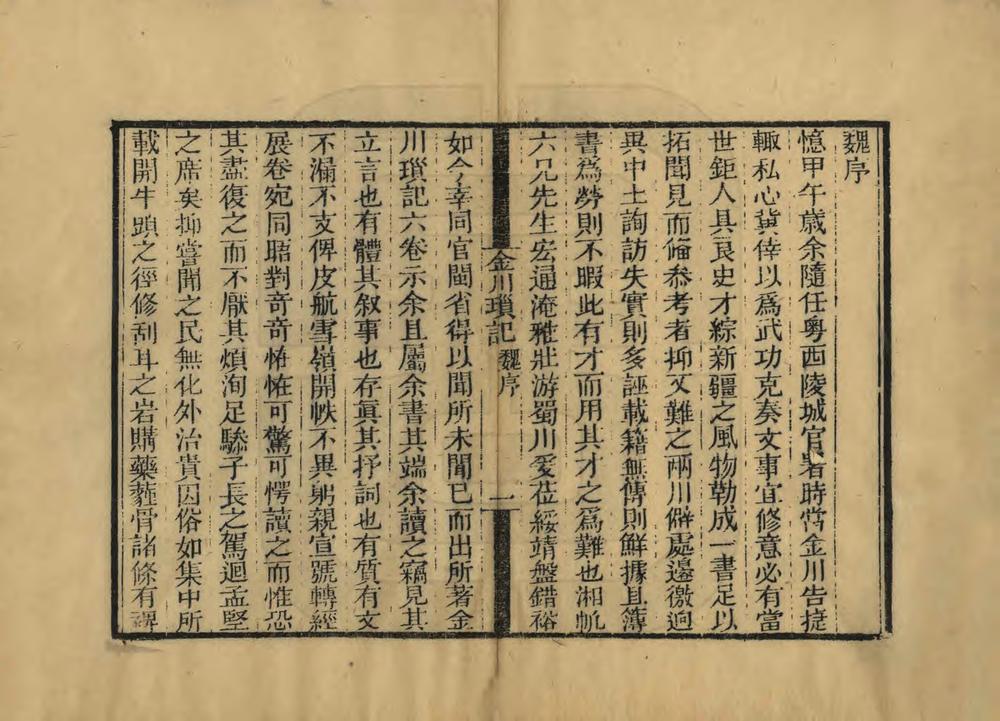 魏序
憶甲午歲余隨任粤西陵城官署時當金川告捷
輙私心冀倖以爲武功克奏文事宜修意必有當
世鉅人具良史才綜新疆之風物勒成一書足以
拓聞見而備叅考者抑又難之兩川僻處邊徼迥
異中土詢訪失實則多誣載籍無傳則鮮據且簿
書爲勞則不暇此有才而用其才之爲難也湘帆
六兄先生宏通淹雅壯游蜀川爰莅綏靖盤錯裕
金川瑣記 魏序 一
如今幸同官閩省得以聞所未聞已而出所著金
川瑣記六卷示余且屬余書其端余讀之竊見其
立言也有體其叙事也存眞其抒詞也有質有文
不漏不支俾皮航雪嶺開帙不異躬親宣號轉經
展卷宛同晤對竒竒恠恠可驚可愕讀之而惟恐
其盡復之而不厭其煩洵足驂子長之駕迴孟堅
之席矣抑嘗聞之民無化外治貴因俗如集中所
載開牛頭之徑修刮耳之岩購藥薶骨諸條有裨